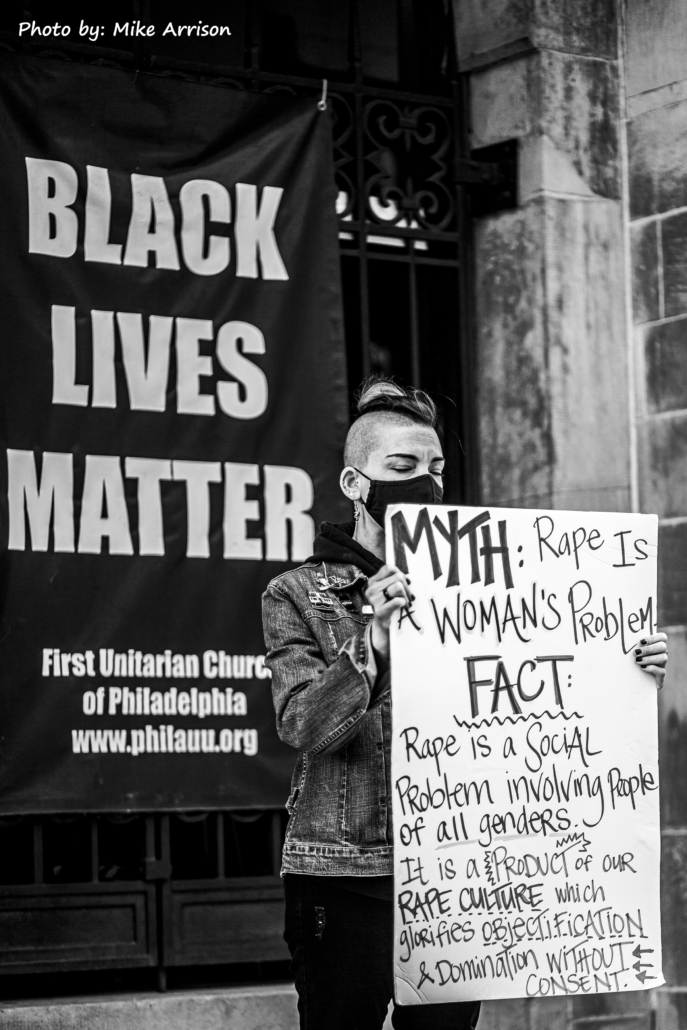 Photo by: Mike Arrison
BLACK
LIVES
MATTER
First Unitarian Churc
of Philadelphia
www.philauu.org
MYTH: Rape Is
A WOMAN'S PRoblem
FACT:
Rape is a SociAL
PRoblem involving People
of all genders.
It is a PRODUCT of our
RAPE CULTURE which
glorifies OBJECTiFiCATiON
& Domination WiTHOUT
CONSENT.